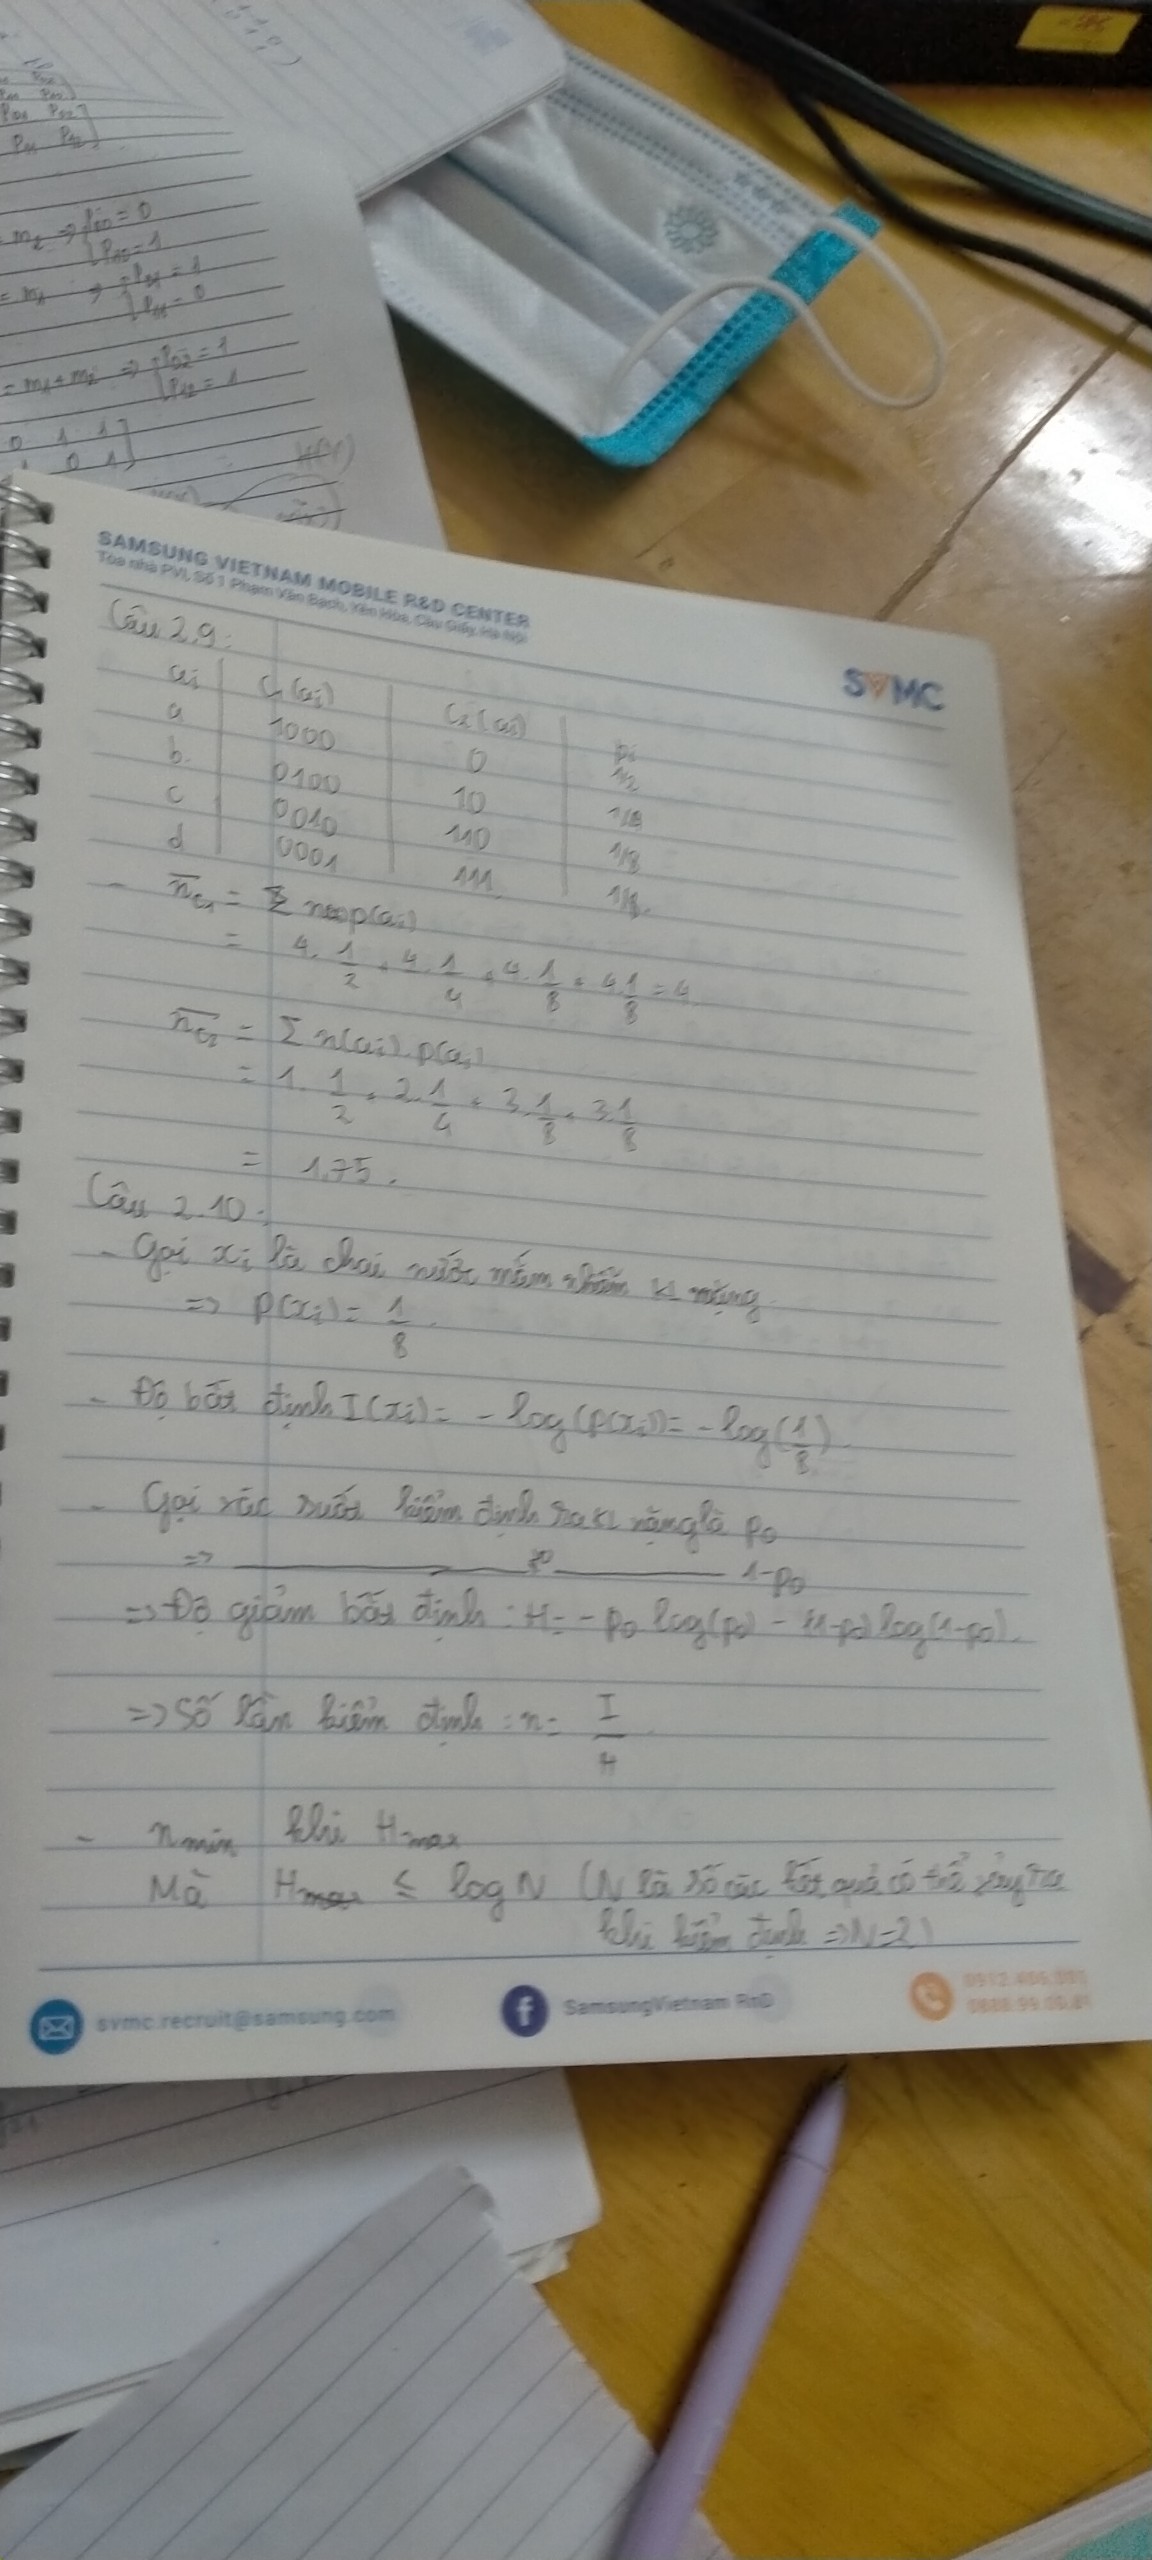 m2 => p10 = 0
p10 = 1
= m1 => = 1
= 0
= m1 + m2 => p02 = 1
p12 = 1
0 1 1
1 0 1
H(Y)
SAMSUNG VIETNAM MOBILE R&D CENTER
Tòa nhà PVI, Số 1 Phạm Văn Bạch, Yên Hòa, Cầu Giấy, Hà Nội
SVMC
Câu 2.9:
ai C1(ai) C2(ai) pi
a 1000 0 1/2
b 0100 10 1/4
c 0010 110 1/8
d 0001 111 1/8
- n̅c1 = Σ p(ai)
= 4. 1/2 + 4. 1/4 + 4. 1/8 + 4. 1/8 = 4
n̅c2 = Σ n(ai). p(ai)
= 1. 1/2 + 2. 1/4 + 3. 1/8 + 3. 1/8
= 1,75.
Câu 2.10:
- Gọi xi là chai nước mắm nhiễm KL nặng
=> p(xi) = 1/8
- Độ bất định I(xi) = - log(p(xi)) = - log(1/8)
- Gọi xác suất kiểm định ra KL nặng là p0
=> 1-p0
=> Độ giảm bất định: H = - p0 log(p0) - (1-p0) log(1-p0).
=> Số lần kiểm định: n = I/H
- nmin khi Hmax
Mà Hmax ≤ log N (N là số các kết quả có thể xảy ra
khi kiểm định => N=2)
svmc.recruit@samsung.com
SamsungVietnam RnD